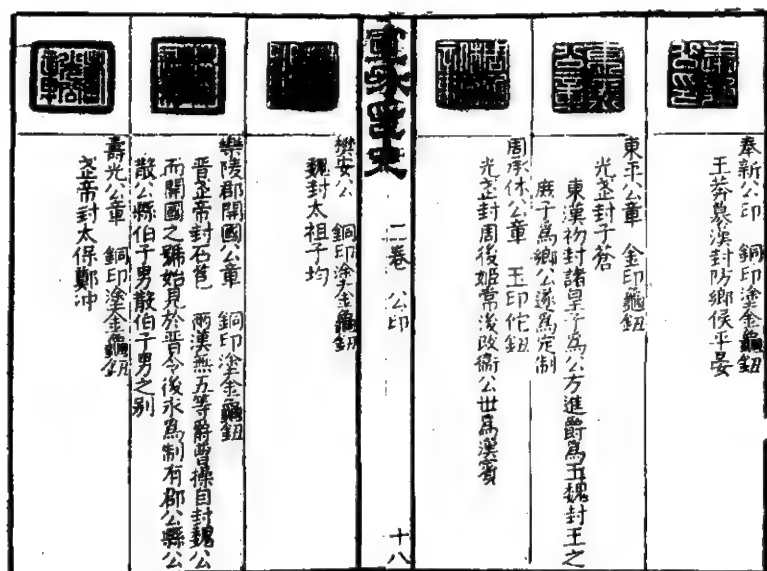 奉新公印　銅印塗金龜鈕
王莽纂漢封防鄉侯平晏
東平公章　金印龜鈕
光武封子蒼
東漢初封諸皇子為公方進爵為王魏封王之
庶子為鄉公遂為定制
周承休公章　玉印佗鈕
光武封周後姬常後改衛公世為漢賓
二卷　公印　十八
樊安公　銅印塗金龜鈕
魏封太祖子均
樂陵郡開國公章　銅印塗金龜鈕
晉武帝封石苞　兩漢無五等爵曹操自封魏公
而開國之號始見於晉令後永為制有郡公縣公
散公縣伯子男散伯子男之别
壽光公章　銅印塗金龜鈕
武帝封太保鄭沖